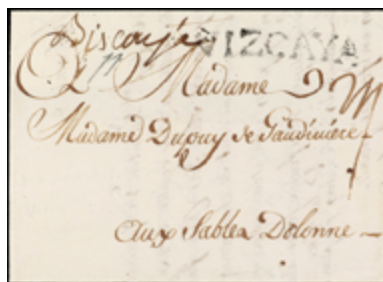 Biscaye VIZCAYA
A Madame
Madame Dupuy de Gaudiniere
Aux Sables Dolonne